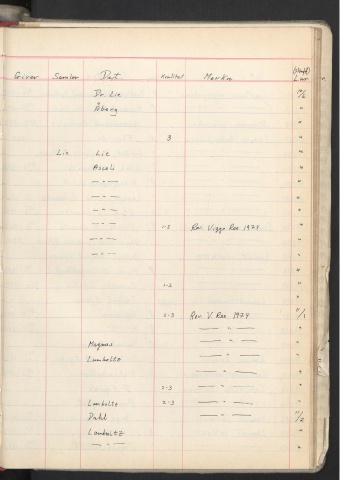 Giver Samler Det Kvalitet Merkn.
Dr. Lie
Åberg
3
Lie Lie
Ascoli
— " —
— " —
— " —
— " —
1-2 Rev. Viggo Ree 1974
— " —
— " —
1-2
2-3 Rev. V. Ree 1974 11/1
— " —
Magnus — " —
Lumholtz — " —
— " —
2-3 — " —
Lumholtz 2-3 — " —
Dahl — " — 11/2
Lumholtz
— " —